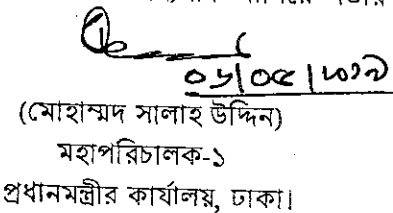 ০১|০৫|২০১৭
(মোহাম্মদ সালাহ উদ্দিন)
মহাপরিচালক-১
প্রধানমন্ত্রীর কার্যালয়, ঢাকা।